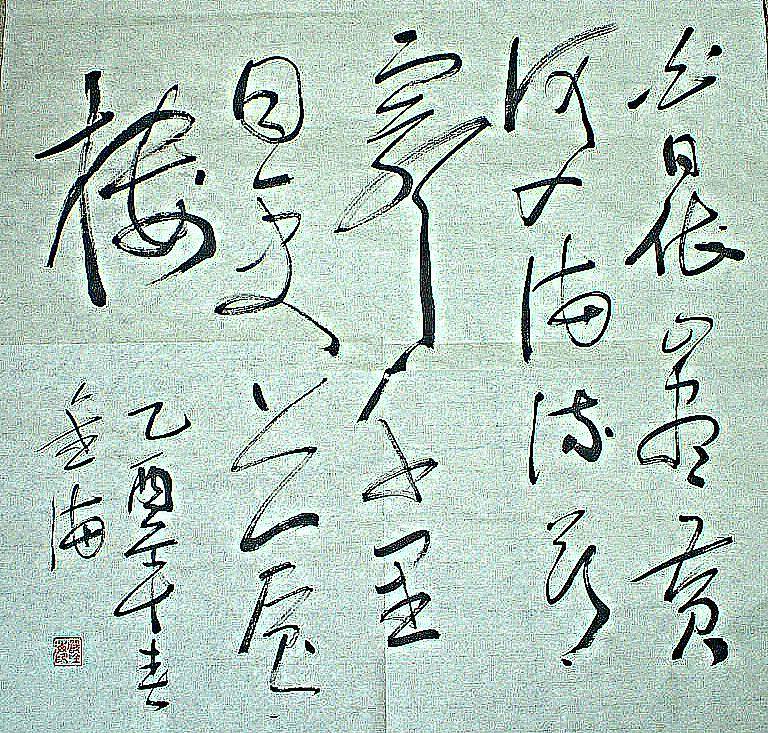 白日依山盡黃
河入海流欲
窮千里
目更上一層
樓
乙酉年春
金海